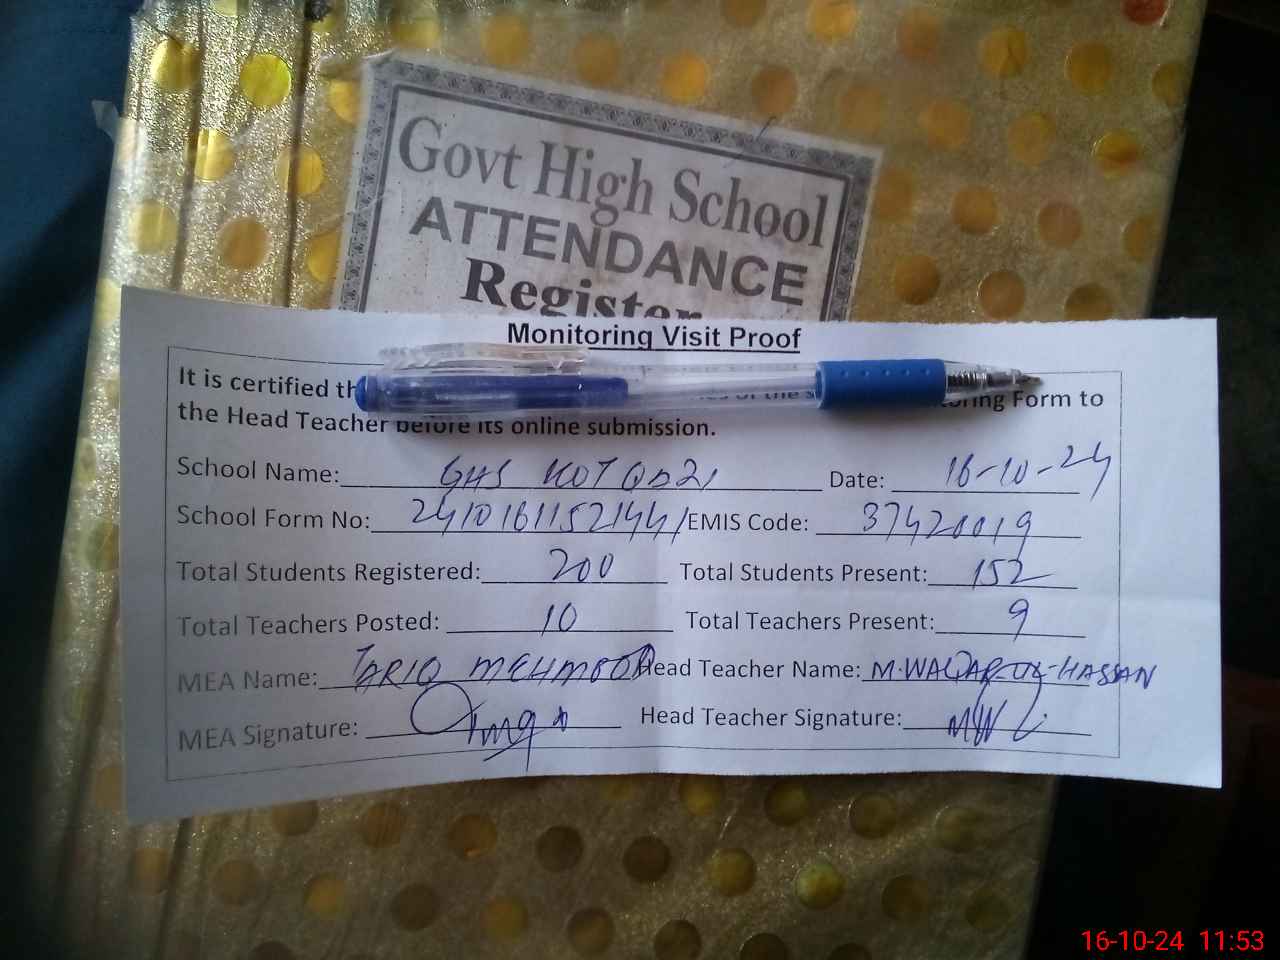 Govt High School
ATTENDANCE
Register
Monitoring Visit Proof
It is certified of the Form to
the Head Teacher before its online submission.
School Name: GHS KOT Date: 16-10-24
School Form No: 2410161152144/ EMIS Code: 37420019
Total Students Registered: 200 Total Students Present: 152
Total Teachers Posted: 10 Total Teachers Present: 9
MEA Name: TARIQ MEHMOOD Head Teacher Name: M.WAQAR-UL-HASSAN
MEA Signature: Head Teacher Signature:
16-10-24 11:53